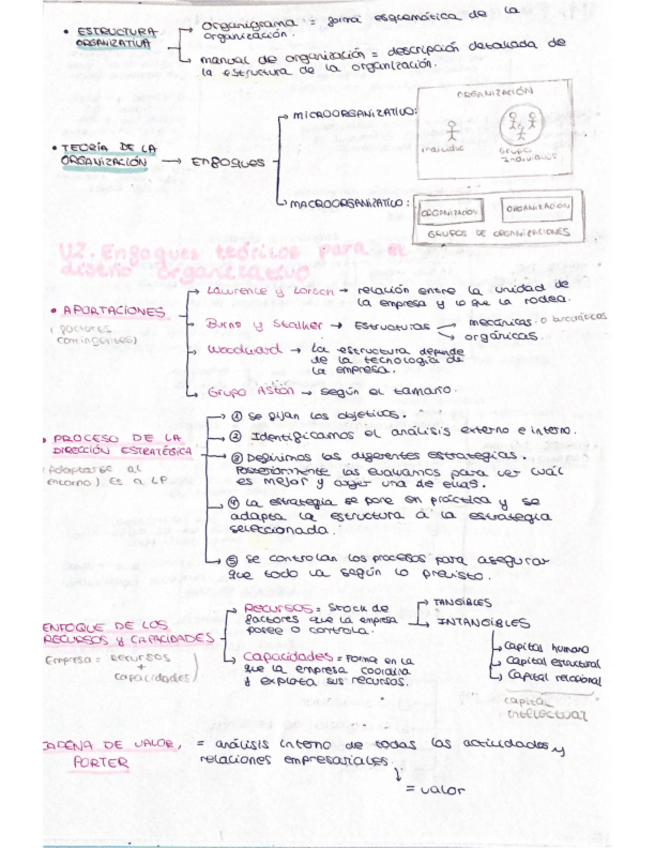 • ESTRUCTURA
ORGANIZATIVA
→ Organigrama = forma esquemática de la
organización.
→ manual de organización = descripción detallada de
la estructura de la organización.
• TEORÍA DE LA
ORGANIZACIÓN → Enfoques
→ MICROORGANIZATIVO:
ORGANIZACIÓN
individuo
Grupo
Individuos
→ MACROORGANIZATIVO:
ORGANIZACIÓN
ORGANIZACIÓN
GRUPOS DE ORGANIZACIONES
U2. Enfoques teóricos para el
diseño organizativo
• APORTACIONES
(factores
contingentes)
→ Lawrence y Lorsch → relación entre la unidad de
la empresa y lo que la rodea.
→ Burns y Stalker → Estructuras
mecánicas. o burocráticas
orgánicas.
→ Woodward → La estructura depende
de la tecnología de
la empresa.
→ Grupo Aston → según el tamaño.
PROCESO DE LA
DIRECCIÓN ESTRATÉGICA
(Adaptarse al
entorno) Es a LP
→ ① Se fijan los objetivos.
→ ② Identificamos el análisis externo e interno.
→ ③ Definimos las diferentes estrategias.
Posteriormente las evaluamos para ver cuál
es mejor y coger una de ellas.
→ ④ La estrategia se pone en práctica y se
adapta la estructura a la estrategia
seleccionada.
→ ⑤ Se controlan los procesos para asegurar
que todo va según lo previsto.
ENFOQUE DE LOS
RECURSOS Y CAPACIDADES
Empresa = recursos
+
capacidades)
→ RECURSOS = Stock de
factores que la empresa
posee o controla.
→ TANGIBLES
→ INTANGIBLES
→ Capital humano
→ Capital estructural
→ Capital relacional
capital
intelectual
→ Capacidades = Forma en la
que la empresa coordina
y explota sus recursos.
CADENA DE VALOR,
PORTER
= análisis interno de todas las actividades y
relaciones empresariales.
= valor